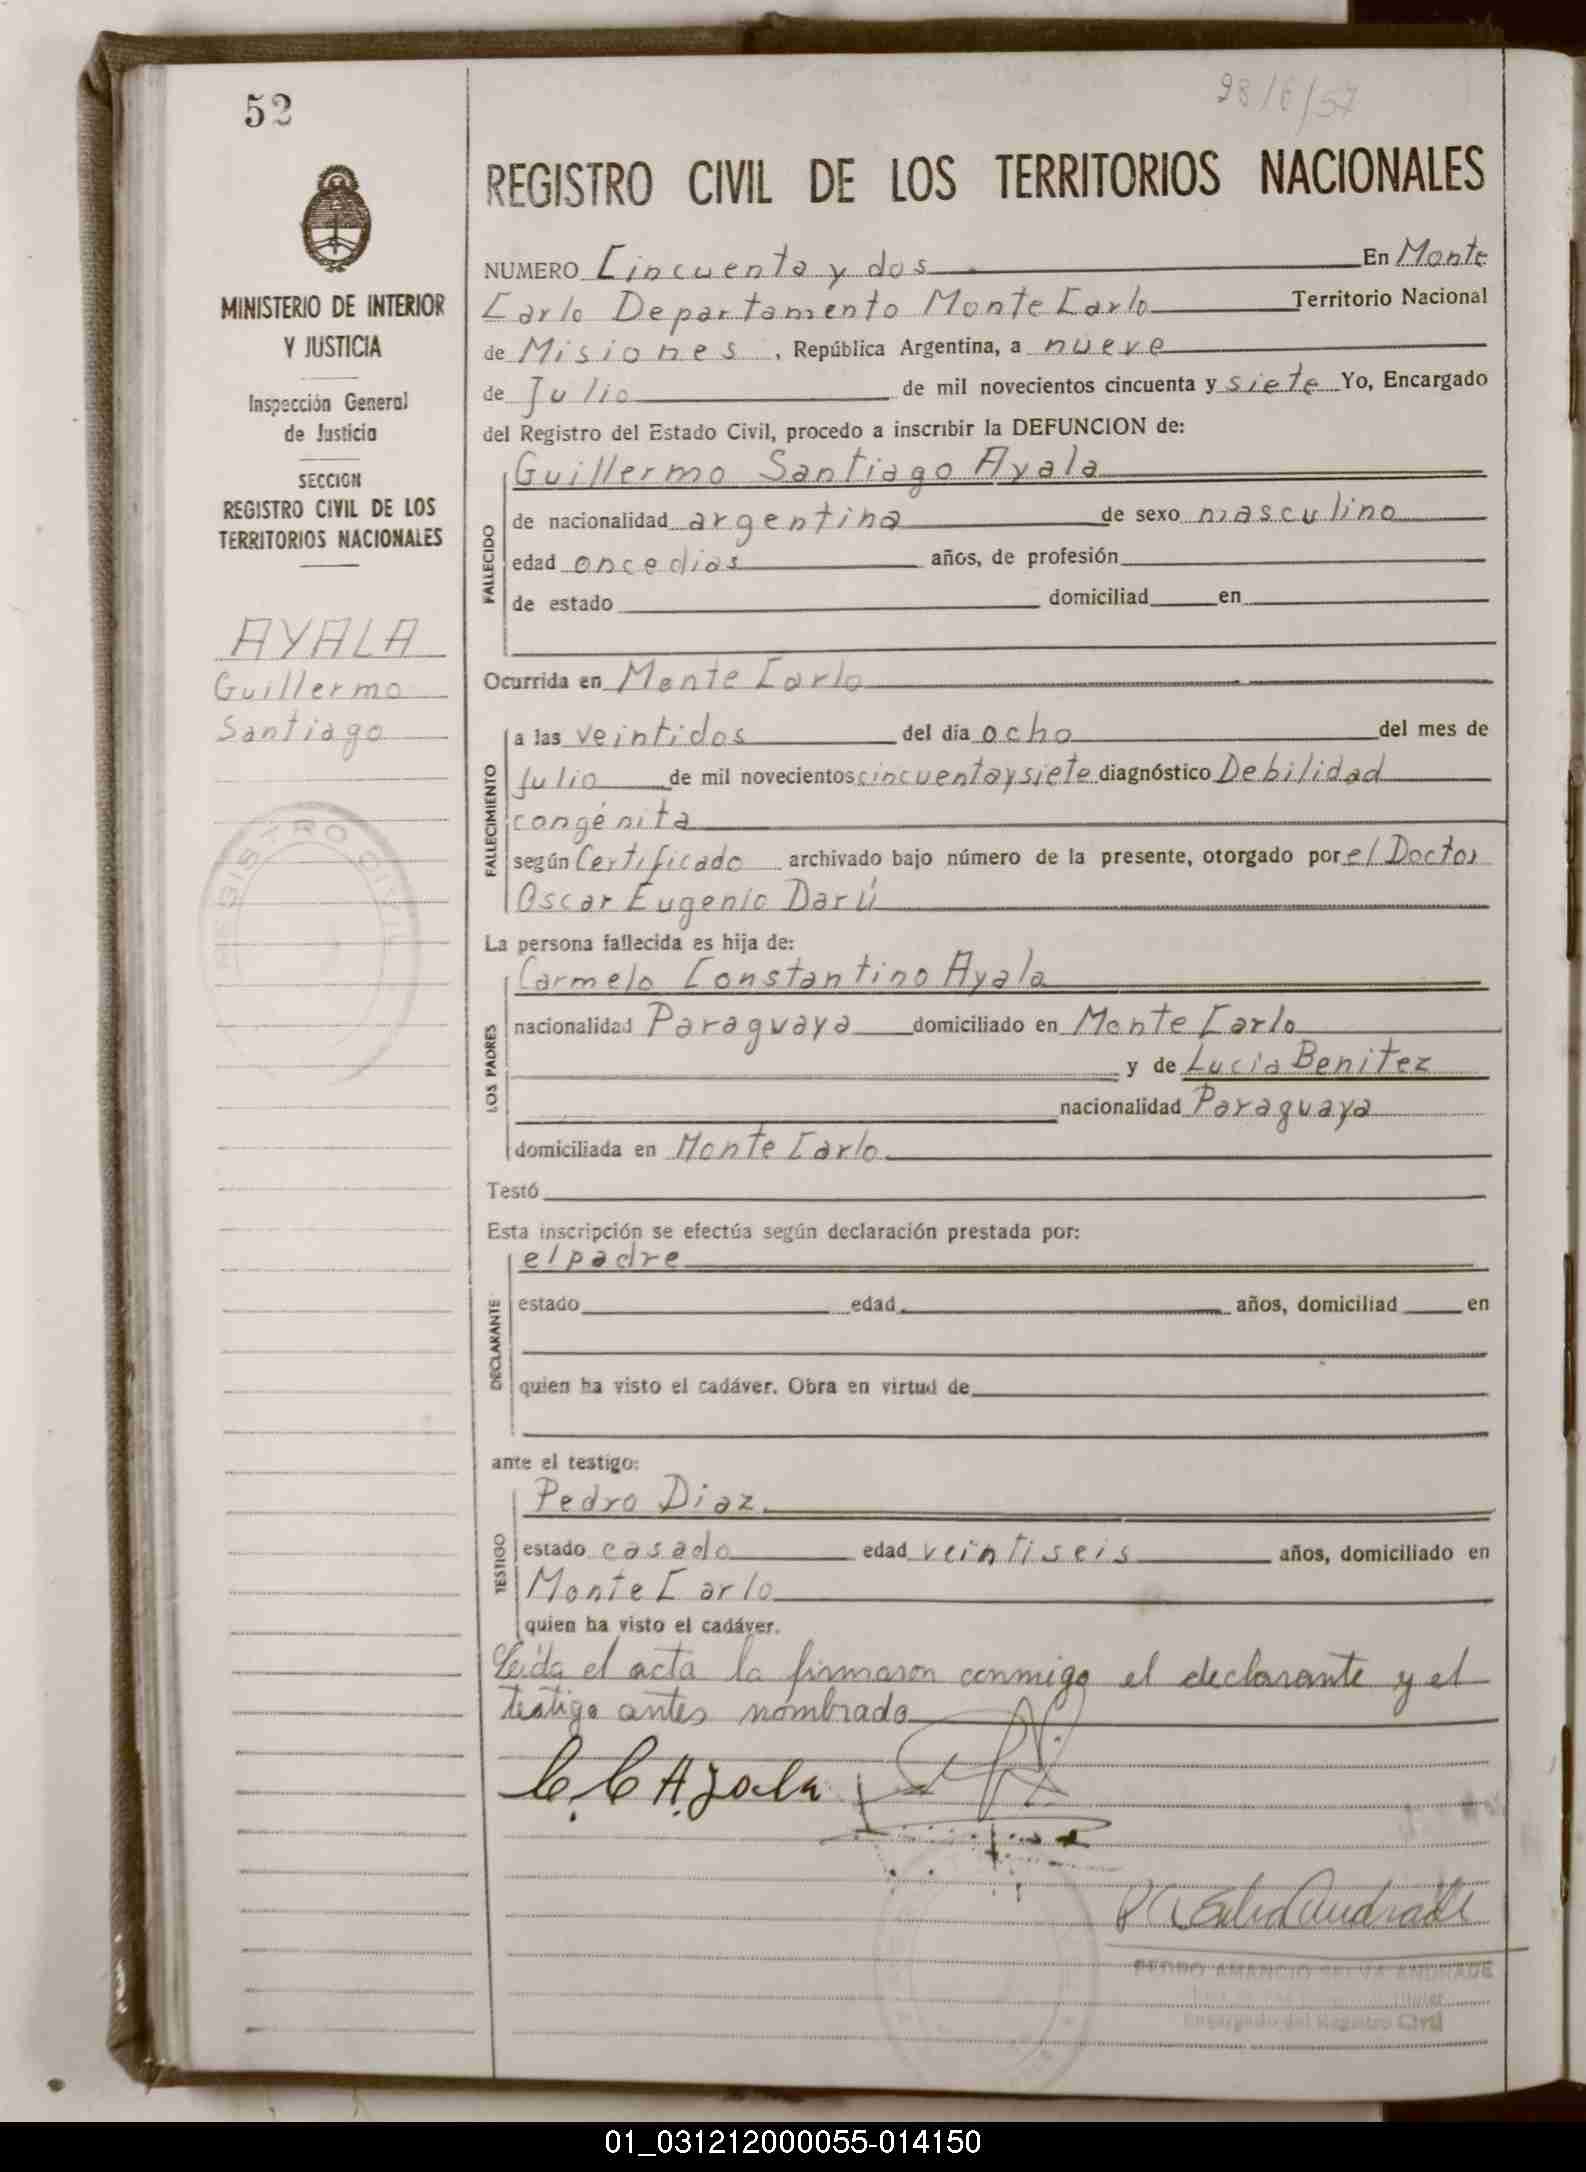 52
28/6/57
REGISTRO CIVIL DE LOS TERRITORIOS NACIONALES
MINISTERIO DE INTERIOR
Y JUSTICIA
Inspección General
de Justicia
SECCION
REGISTRO CIVIL DE LOS
TERRITORIOS NACIONALES
AYALA
Guillermo
Santiago
REGISTRO CIVIL
NUMERO Cincuenta y dos En Monte
Carlo Departamento Monte Carlo Territorio Nacional
de Misiones, República Argentina, a nueve
de Julio de mil novecientos cincuenta y siete Yo, Encargado
del Registro del Estado Civil, procedo a inscribir la DEFUNCION de:
FALLECIDO
Guillermo Santiago Ayala
de nacionalidad argentina de sexo masculino
edad once dias años, de profesión
de estado domiciliad en
Ocurrida en Monte Carlo
FALLECIMIENTO
a las veintidos del día ocho del mes de
Julio de mil novecientos cincuenta y siete diagnóstico Debilidad
congénita
según Certificado archivado bajo número de la presente, otorgado por el Doctor
Oscar Eugenio Darú
La persona fallecida es hija de:
LOS PADRES
Carmelo Constantino Ayala
nacionalidad Paraguaya domiciliado en Monte Carlo
y de Lucia Benitez
nacionalidad Paraguaya
domiciliada en Monte Carlo
Testó
Esta inscripción se efectúa según declaración prestada por:
DECLARANTE
el padre
estado edad años, domiciliad en
quien ha visto el cadáver. Obra en virtud de
ante el testigo:
TESTIGO
Pedro Diaz
estado casado edad veintiseis años, domiciliado en
Monte Carlo
quien ha visto el cadáver.
Leída el acta la firmaron conmigo el declarante y el
testigo antes nombrado
C. C. Ayala
PEDRO AMANCIO SELVA ANDRADE
Encargado del Registro Civil
01_031212000055-014150